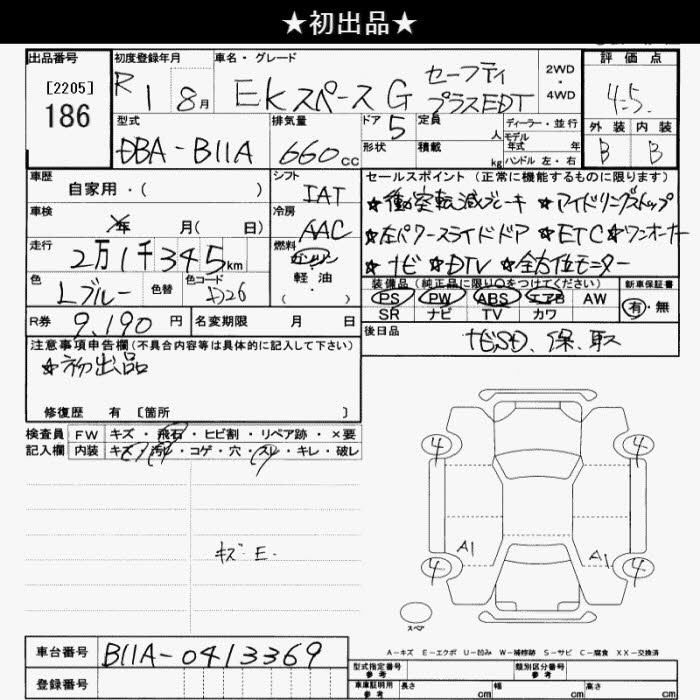 ★初出品★
出品番号 [2205] 186
初度登録年月 R 1 8月
車名・グレード EKスペースG セーフティプラスEDT 2WD・4WD
評価点 4.5
外装 内装 B B
型式 DBA-B11A
排気量 660cc
ドア 5 形状
定員 人 積載 kg
ディーラー・並行 モデル年式 年 ハンドル 左・右
車歴 自家用・( )
シフト IAT
車検 年 月( 日)
冷房 AAC
走行 2万1千345km
燃料 ガソリン 軽・油 ( )
色 Lブルー 色替 色コード D26
R券 9,190円 名変期限 月 日
セールスポイント (正常に機能するものに限ります)
★衝突軽減ブレーキ ★アイドリングストップ
★左パワースライドドア ★ETC ★ワンオーナー
★ナビ ★DTV ★全方位モニター
装備品 (純正品に限り○をつけてください)
PS PW ABS エアB AW
SR ナビ TV カワ
新車保証書 有・無
後日品 ナビSD、保、取
注意事項申告欄(不具合内容等は具体的に記入して下さい)
★初出品
修復歴 有 [箇所 ]
検査員記入欄 FW キズ・飛石・ヒビ割・リペア跡・×要
内装 キズ・汚れ・コゲ・穴・スレ・キレ・破レ
キズ E.
4 4
A1 A1
4 4
スペア
A-キズ E-エクボ U-凹み W-補修跡 S-サビ C-腐食 XX-交換済
車台番号 B11A-0413369
登録番号
型式指定番号 参考 類別区分番号 参考
車庫証明用 参考 長さ cm 幅 cm 高さ cm